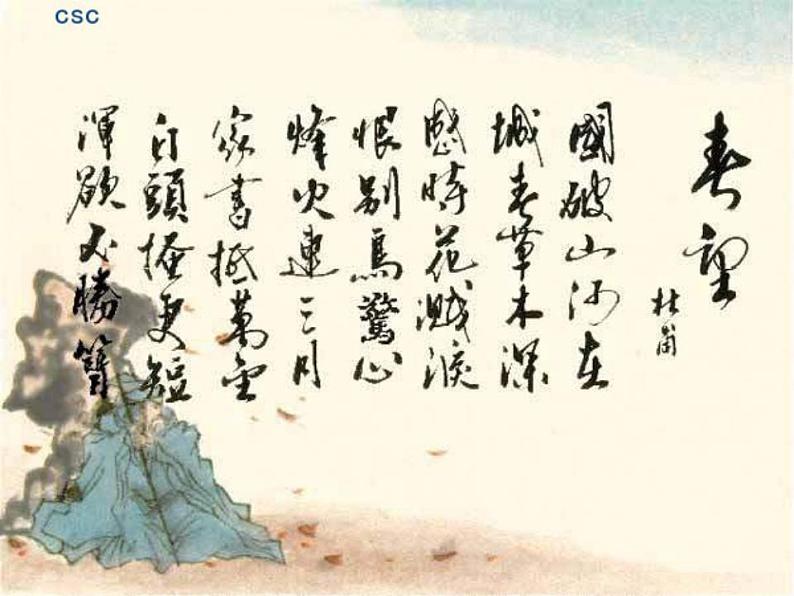 CSC
春望
杜甫
國破山河在
城春草木深
感時花濺淚
恨別鳥驚心
烽火連三月
家書抵萬金
白頭搔更短
渾欲不勝簪